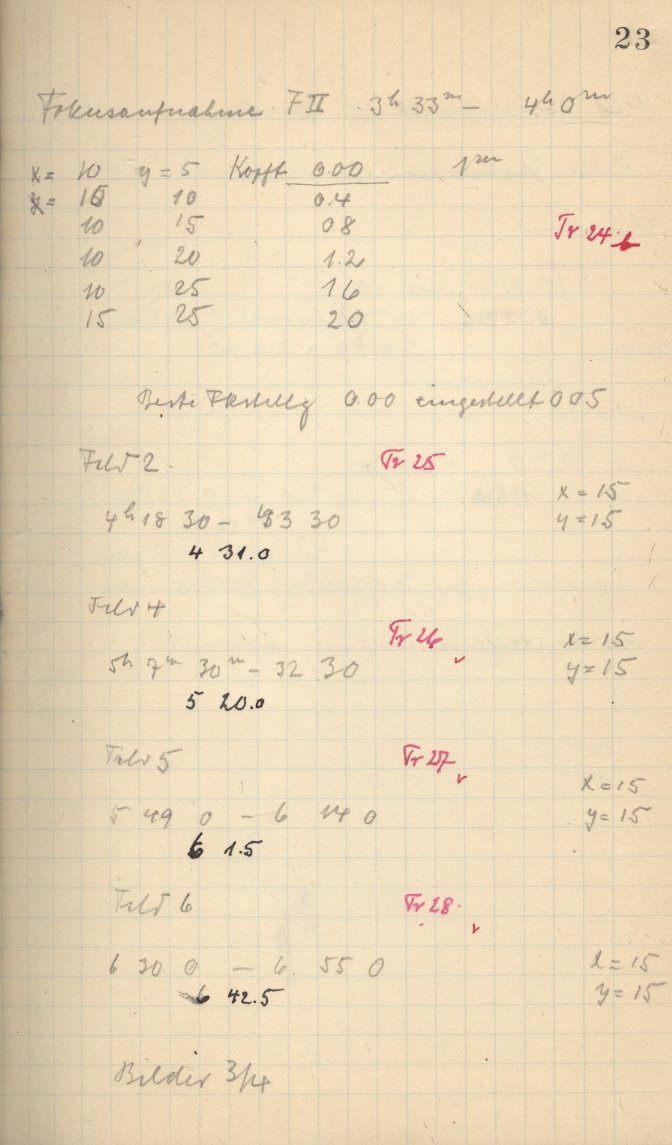 23
Fokusaufnahme F II 3h 33m – 4h 0m
x = 10 y = 5 Kopft 0.00 1m
x = 10 10 0.4
10 15 0.8
Tr 24
10 20 1.2
10 25 1 6
15 25 2 0
Beste 0.00 eingestellt 0 05
Feld 2. Tr 25
x = 15
4h 18 30 – 43 30 y = 15
4 31.0
Feld 4
Tr 26 x = 15
5h 7m 30m – 32 30 y = 15
5 20.0
Feld 5 Tr 27
x = 15
5 49 0 – 6 14 0 y = 15
6 1.5
Feld 6 Tr 28.
6 30 0 – 6. 55 0 x = 15
6 42.5 y = 15
Bilder 3/4